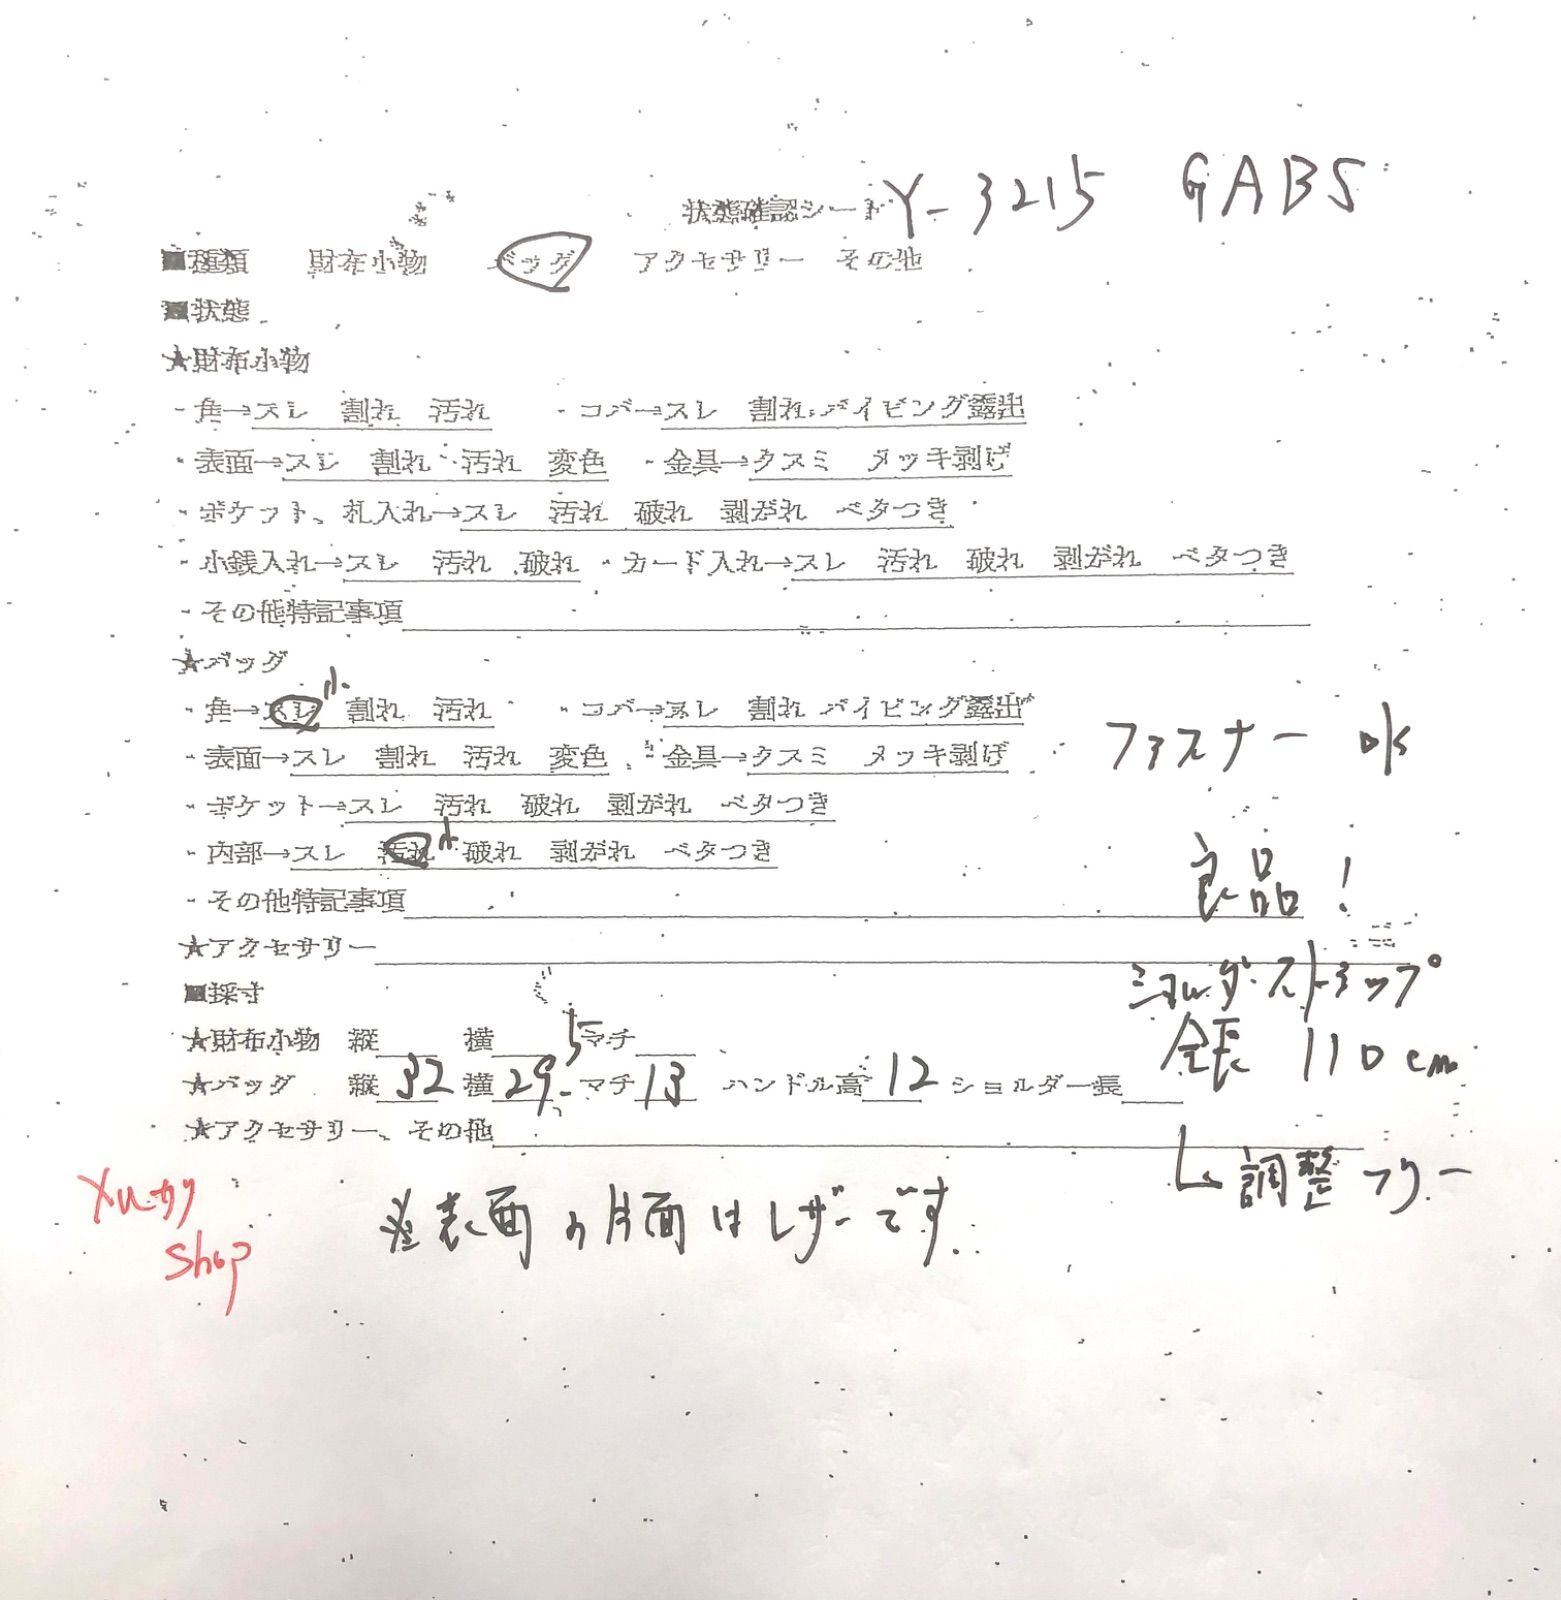 状態確認シート Y-3215 GABS
■種類 財布小物 バッグ アクセサリー その他
■状態
★財布小物
・角→スレ 割れ 汚れ ・コバ→スレ 割れ パイピング露出
・表面→スレ 割れ 汚れ 変色 ・金具→クスミ メッキ剥げ
・ポケット、札入れ→スレ 汚れ 破れ 剥がれ ベタつき
・小銭入れ→スレ 汚れ 破れ ・カード入れ→スレ 汚れ 破れ 剥がれ ベタつき
・その他特記事項
★バッグ
・角→スレ 小 割れ 汚れ ・コバ→スレ 割れ パイピング露出
・表面→スレ 割れ 汚れ 変色 ・金具→クスミ メッキ剥げ ファスナー ok
・ポケット→スレ 汚れ 破れ 剥がれ ベタつき
・内部→スレ 汚れ 小 破れ 剥がれ ベタつき
良品!
・その他特記事項
★アクセサリー
■採寸
ショルダーストラップ
★財布小物 縦 横 マチ
全長 110cm
★バッグ 縦 32 横 29.5 マチ 13 ハンドル高 12 ショルダー長
★アクセサリー、その他
↳調整フリー
メルカリ
shop
※表面の片面はレザーです